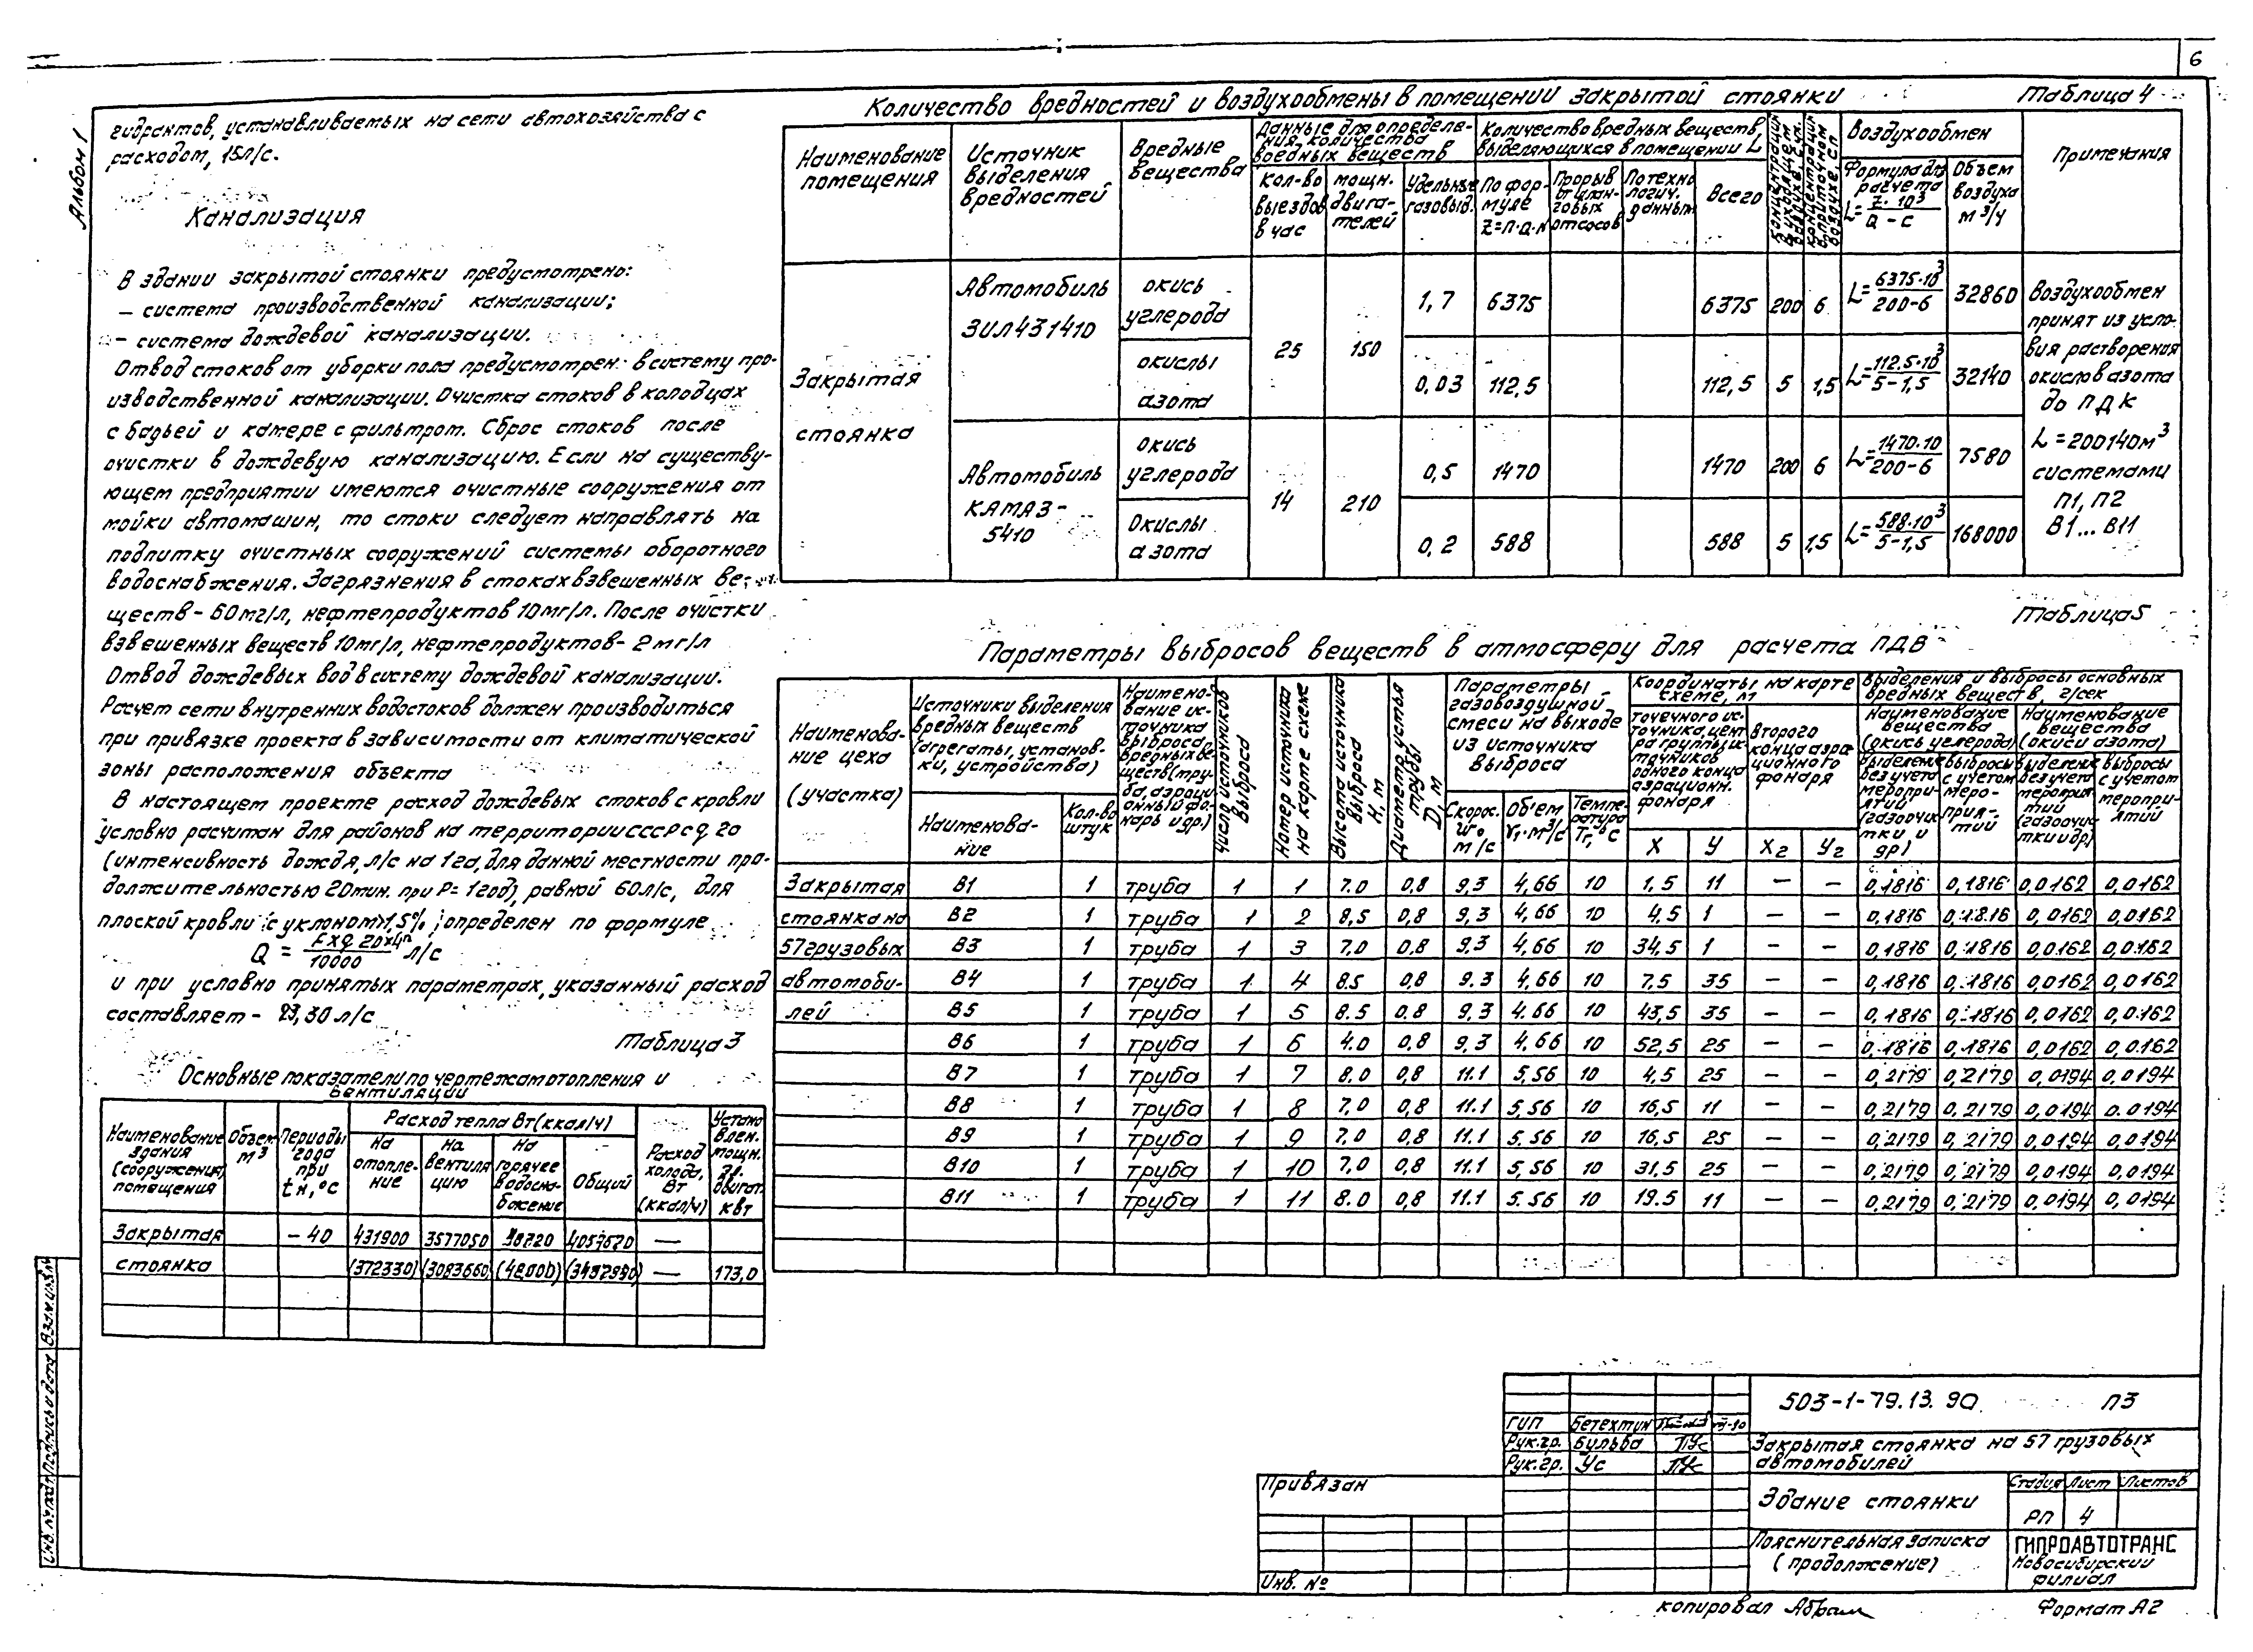 6
Альбом I
гидрантов, устанавливаемых на сети автохозяйства с
расходом, 15л/с.
Канализация
В здании закрытой стоянки предусмотрено:
— система производственной канализации;
— система дождевой канализации.
Отвод стоков от уборки пола предусмотрен в систему про-
изводственной канализации. Очистка стоков в колодцах
с бадьей и камере с фильтром. Сброс стоков после
очистки в дождевую канализацию. Если на существу-
ющем предприятии имеются очистные сооружения от
мойки автомашин, то стоки следует направлять на
подпитку очистных сооружений системы оборотного
водоснабжения. Загрязнения в стоках взвешенных ве-
ществ - 60мг/л, нефтепродуктов 10мг/л. После очистки
взвешенных веществ 10мг/л, нефтепродуктов - 2мг/л
Отвод дождевых вод в систему дождевой канализации.
Расчет сети внутренних водостоков должен производиться
при привязке проекта в зависимости от климатической
зоны расположения объекта
В настоящем проекте расход дождевых стоков с кровли
условно расчитан для районов на территории СССР с q 20
(интенсивность дождя, л/с на 1га, для данной местности про-
должительностью 20мин. при P= 1год), равной 60л/с, для
плоской кровли (с уклоном>1,5%) определен по формуле
Q = F x q 20 x 4ⁿ / 10000 л/с
и при условно принятых параметрах, указанный расход
составляет - 23,30 л/с
Таблица 3
Основные показатели по чертежам отопления и
вентиляции
Наименование здания (сооружения) помещения | Объем м³ | Периоды года при tн,°С | Расход тепла Вт (ккал/ч) | Расход холода, Вт (ккал/ч) | Установлен. мощн. эл. двигат. кВт
на отопление | на вентиляцию | на горячее водоснабжение | Общий
Закрытая | -40 | 431900 | 3577050 | | | —
стоянка | (372330) | (3083660) | | | — | 173,0
Количество вредностей и воздухообмены в помещении закрытой стоянки
Таблица 4
Наименование помещения | Источник выделения вредностей | Вредные вещества | Данные для определения количества вредных веществ | Количество вредных веществ, выделяющихся в помещении L | Концентрация в уходящем воздухе, сух. | Концентрация в приточном воздухе сп | Воздухообмен | Примечания
Кол-во выездов в час | мощн. двигателей | Удельные газовыд. | По формуле Z=n·q·N | Прорыв от шланговых отсосов | По технологич. данным | Всего | Формула для расчета L= Z·10³ / Q - C | Объем воздуха м³/ч
Закрытая стоянка | Автомобиль ЗИЛ431410 | окись углерода | 25 | 150 | 1,7 | 6375 | 6375 | 200 | 6 | L= 6375·10³ / 200-6 | 32860
окислы азота | 0,03 | 112,5 | 112,5 | 5 | 1,5 | L= 112.5·10³ / 5-1,5 | 32140
Автомобиль КАМАЗ-5410 | окись углерода | 14 | 210 | 0,5 | 1470 | 1470 | 200 | 6 | L= 1470·10 / 200-6 | 7580
Окислы азота | 0,2 | 588 | 588 | 5 | 1,5 | L= 588·10³ / 5-1,5 | 168000
Воздухообмен
принят из усло-
вия растворения
окислов азота
до ПДК
L = 200140м³
системами
П1, П2
В1...В11
Таблица 5
Параметры выбросов веществ в атмосферу для расчета ПДВ
Наименование цеха (участка) | Источники выделения вредных веществ (агрегаты, установки, устройства) | Наименование источника выброса вредных веществ (труба, аэрационный фонарь и др.) | Число источников выброса | Номер источника на карте схеме | Высота источника выброса Н, м | Диаметр устья трубы D, м | Параметры газовоздушной смеси на выходе из источника выброса | Координаты на карте схеме, м | Выделения и выбросы основных вредных веществ, г/сек
точечного источника, центра группы источников одного конца аэрационн. фонаря | второго конца аэрационного фонаря | Наименование вещества (окись углерода) | Наименование вещества (окиси азота)
Наименование | Кол-во штук | Скорос. Wо м/с | Объем V₁·м³/с | Температура Тг,°С | X | У | X₂ | У₂ | Выделение без учета мероприятий (газоочистки и др) | Выбросы с учетом мероприятий | Выделение без учета мероприятий (газоочистки и др) | Выбросы с учетом мероприятий
Закрытая | В1 | 1 | труба | 1 | 1 | 7.0 | 0,8 | 9,3 | 4,66 | 10 | 1,5 | 11 | — | — | 0,1816 | 0,1816 | 0,0162 | 0,0162
стоянка на | В2 | 1 | труба | 1 | 2 | 8,5 | 0,8 | 9,3 | 4,66 | 10 | 4,5 | 1 | — | — | 0,1816 | 0,1816 | 0,0162 | 0,0162
57 грузовых | В3 | 1 | труба | 1 | 3 | 7,0 | 0,8 | 9.3 | 4,66 | 10 | 34,5 | 1 | — | — | 0,1816 | 0,1816 | 0,0162 | 0,0162
автомоби- | В4 | 1 | труба | 1 | 4 | 8.5 | 0,8 | 9.3 | 4,66 | 10 | 7,5 | 35 | — | — | 0,1816 | 0,1816 | 0,0162 | 0,0162
лей | В5 | 1 | труба | 1 | 5 | 8.5 | 0,8 | 9,3 | 4.66 | 10 | 43,5 | 35 | — | — | 0,1816 | 0,1816 | 0,0162 | 0,0162
В6 | 1 | труба | 1 | 6 | 4.0 | 0,8 | 9,3 | 4,66 | 10 | 52,5 | 25 | — | — | 0,1816 | 0,1816 | 0,0162 | 0,0162
В7 | 1 | труба | 1 | 7 | 8.0 | 0,8 | 11.1 | 5,56 | 10 | 4,5 | 25 | — | — | 0,2179 | 0,2179 | 0,0194 | 0,0194
В8 | 1 | труба | 1 | 8 | 7,0 | 0,8 | 11.1 | 5,56 | 10 | 16,5 | 11 | — | — | 0,2179 | 0,2179 | 0,0194 | 0.0194
В9 | 1 | труба | 1 | 9 | 7.0 | 0,8 | 11.1 | 5.56 | 10 | 16,5 | 25 | — | — | 0,2179 | 0,2179 | 0,0194 | 0,0194
В10 | 1 | труба | 1 | 10 | 7,0 | 0,8 | 11.1 | 5,56 | 10 | 31,5 | 25 | — | — | 0,2179 | 0,2179 | 0,0194 | 0,0194
В11 | 1 | труба | 1 | 11 | 8.0 | 0,8 | 11.1 | 5.56 | 10 | 19.5 | 11 | — | — | 0,2179 | 0,2179 | 0,0194 | 0,0194
503-1-79.13.90 ПЗ
ГИП Бетехтин
Рук.гр. Бульба
Рук.гр. Ус
Закрытая стоянка на 57 грузовых
автомобилей
Привязан
Здание стоянки
Стадия Лист Листов
РП 4
Пояснительная записка
(продолжение)
ГИПРОАВТОТРАНС
Новосибирский
филиал
Инв. №
копировал Абрам
Формат А2
Инв. № подл. Подпись и дата Взам. инв. №